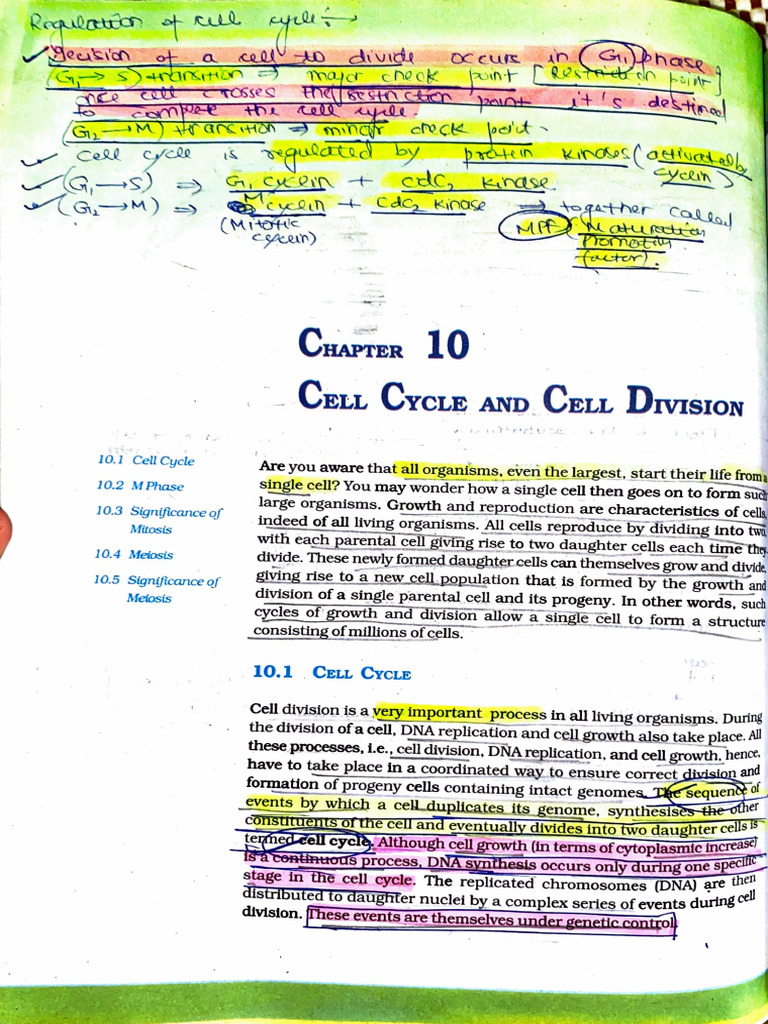 Regulation of cell cycle:→
Decision of a cell to divide occurs in G1 phase
(G1→S) transition ⇒ major check point [Restriction point]
once cell crosses the restriction point it's destined
to complete the cell cycle.
(G2→M) transition ⇒ minor check point.
Cell cycle is regulated by protein kinases (activated by
cyclin)
(G1→S) ⇒ G1 cyclin + cdc2 kinase
(G2→M) ⇒ M cyclin + Cdc2 kinase ⇒ together called
(Mitotic
cyclin)
MPF (Maturation
Promoting
factor).
CHAPTER 10
CELL CYCLE AND CELL DIVISION
10.1 Cell Cycle
10.2 M Phase
10.3 Significance of
Mitosis
10.4 Meiosis
10.5 Significance of
Meiosis
Are you aware that all organisms, even the largest, start their life from a
single cell? You may wonder how a single cell then goes on to form such
large organisms. Growth and reproduction are characteristics of cells,
indeed of all living organisms. All cells reproduce by dividing into two,
with each parental cell giving rise to two daughter cells each time they
divide. These newly formed daughter cells can themselves grow and divide,
giving rise to a new cell population that is formed by the growth and
division of a single parental cell and its progeny. In other words, such
cycles of growth and division allow a single cell to form a structure
consisting of millions of cells.
10.1 CELL CYCLE
Cell division is a very important process in all living organisms. During
the division of a cell, DNA replication and cell growth also take place. All
these processes, i.e., cell division, DNA replication, and cell growth, hence,
have to take place in a coordinated way to ensure correct division and
formation of progeny cells containing intact genomes. The sequence of
events by which a cell duplicates its genome, synthesises the other
constituents of the cell and eventually divides into two daughter cells is
termed cell cycle. Although cell growth (in terms of cytoplasmic increase)
is a continuous process, DNA synthesis occurs only during one specific
stage in the cell cycle. The replicated chromosomes (DNA) are then
distributed to daughter nuclei by a complex series of events during cell
division. These events are themselves under genetic control.